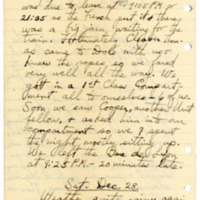 was due to leave at 9:05 P.M. or
21:05 as the French put it. There
was a big jam waiting for the
Fortunately Claxton has
as came to Dole with us
knew the ropes, so we fared
very well all the way. We
got in a 1st Class Compart-
ment all to ourselves
Soon, we saw Cooper, another Unit
fellow, & asked him into our
compartment so we 7 spent
the night, mostly sitting up.
We left the Gare de Lyon
at 9:25 P.M. - 20 minutes late.
Sat. Dec. 28.
Weather quite rainy again